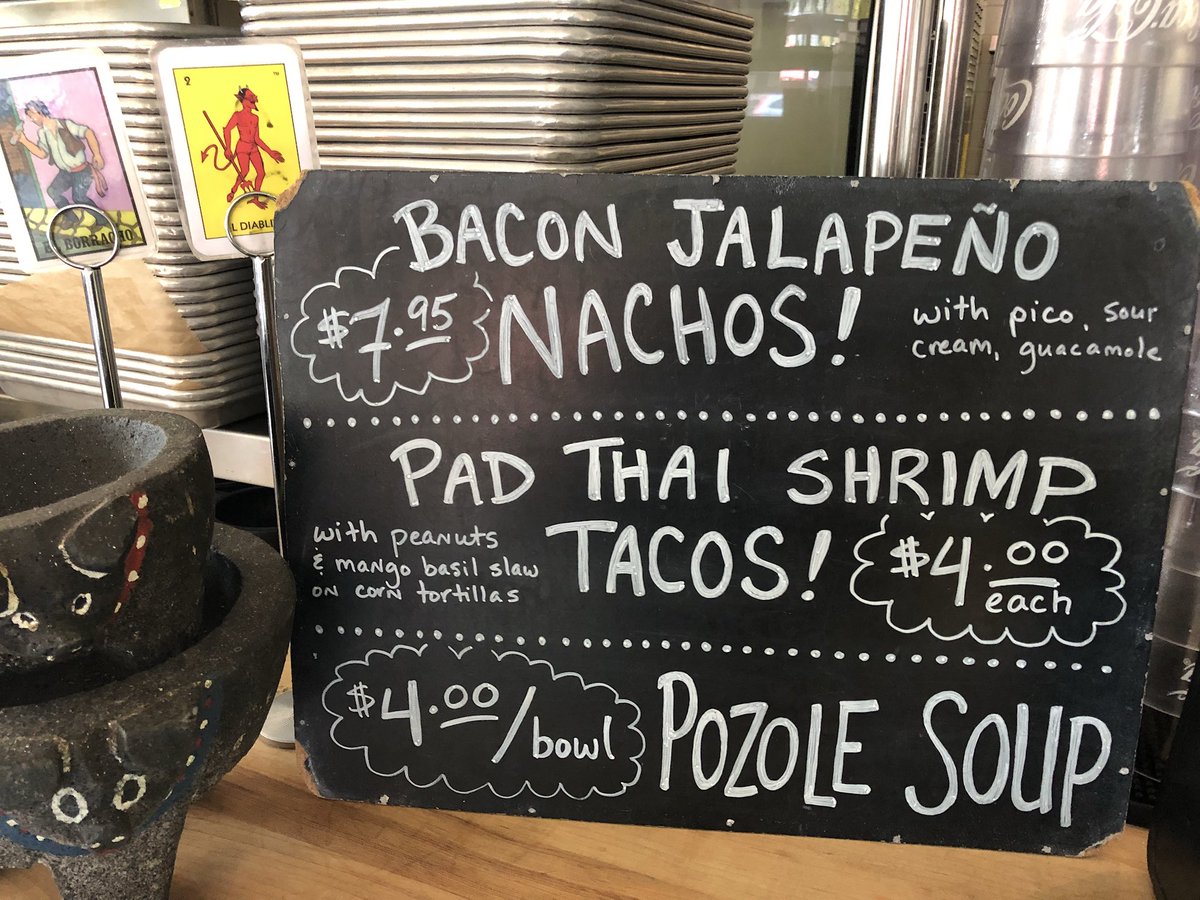 2
EL BORRACHO
EL DIABLITO
BACON JALAPEÑO
$7.95 NACHOS!
with pico, sour
cream, guacamole
PAD THAI SHRIMP
TACOS!
with peanuts
& mango basil slaw
on corn tortillas
$4.00
each
$4.00/bowl
POZOLE SOUP